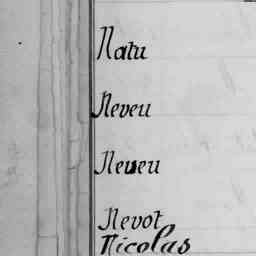 Natu
Neveu
Neveu
Nevot
Nicolas